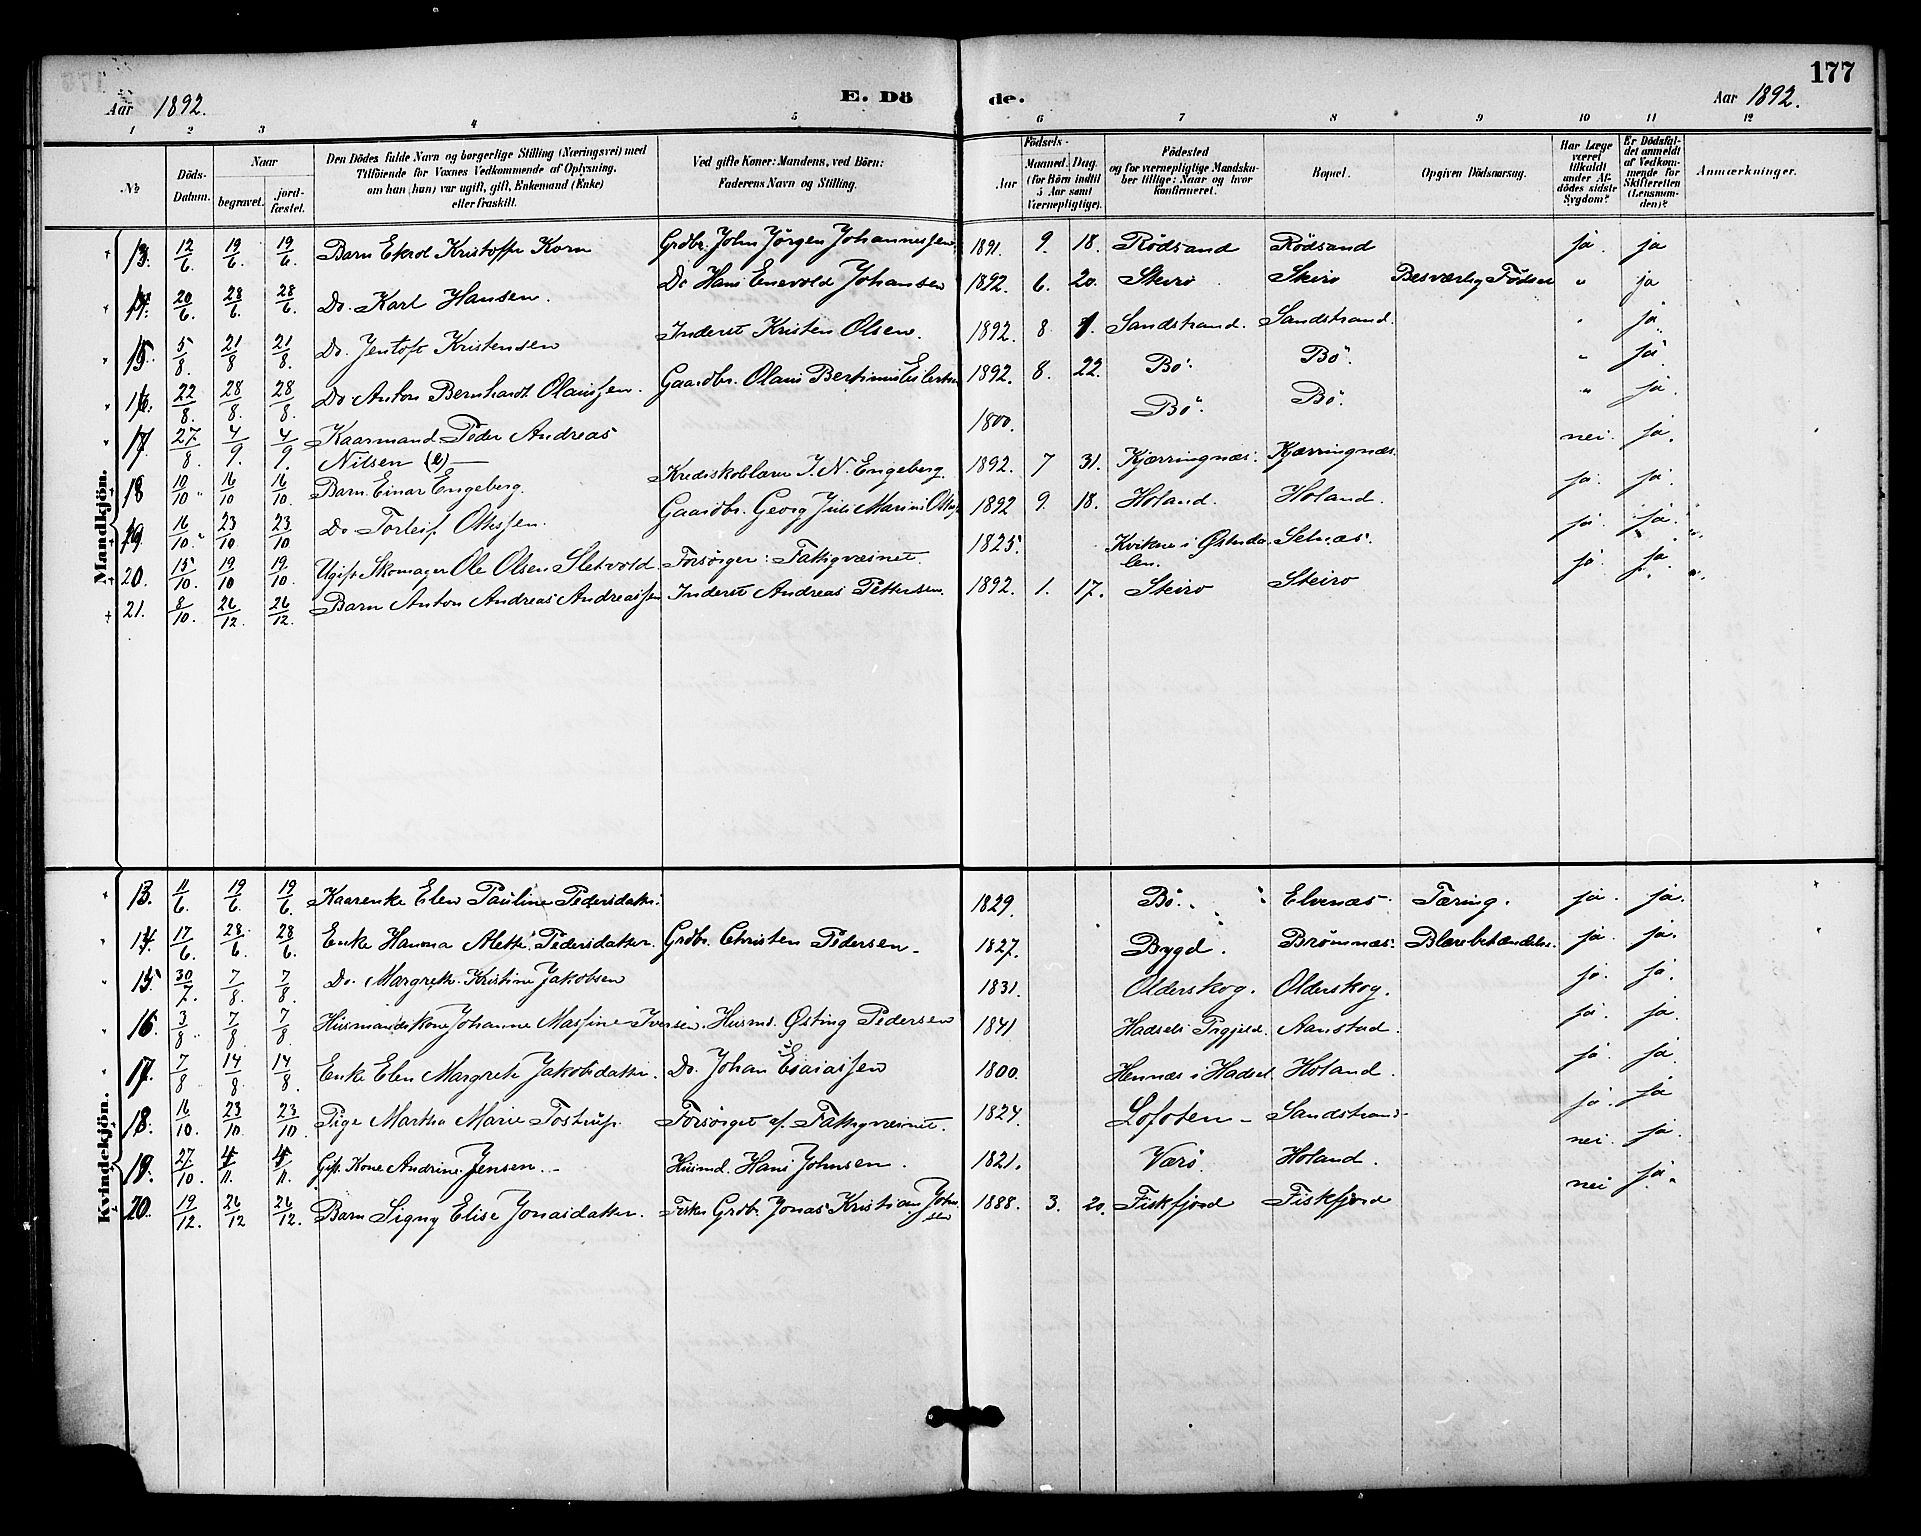 177
Aar 1892. E. Dö de. Aar 1892.
1 2 3 4 5 6 7 8 9 10 11 12
No
Döds-Datum.
Naar
begravet. jordfæstet.
Den Dödes fulde Navn og borgerlige Stilling (Næringsvei) med Tilföiende for Voxnes Vedkommende af Oplysning, om han (hun) var ugift, gift, Enkemand (Enke) eller fraskilt.
Ved gifte Koner: Mandens, ved Börn: Faderens Navn og Stilling.
Födsels-
Aar Maaned. Dag. (for Börn indtil 5 Aar samt Værnepligtige).
Födested og for værnepligtige Mandskaber tillige: Naar og hvor konfirmeret.
Bopæl.
Opgiven Dödsaarsag.
Har Læge været tilkaldt under Afdödes sidste Sygdom?
Er Dödsfaldet anmeldt af Vedkommende for Skifteretten (Lensmanden)?
Anmærkninger.
Mandkjön.
13. 12/6. 19/6. 19/6. Barn Ekrol Kristoffer Korn Grdbr. John Jörgen Johannessen 1891. 9. 18. Rödsand Rödsand ja. ja
14. 20/6. 28/6. 28/6. Do. Karl Hansen. Do Hans Enevold Johansen 1892. 6. 20. Skirö Skirö Besværlig Födsel " ja
15. 5/8. 21/8. 21/8. Do. Jentoft Kristensen Inderst Kristen Olsen. 1892. 8 1. Sandstrand. Sandstrand. " ja
16. 22/8. 28/8. 28/8. Do. Anton Bernhardt Olaussen. Gaardbr. Olaus Bertinius Eilertsen 1892. 8. 22. Bö. Bö. " ja
17. 27/8. 4/9. 4/9. Kaarmand Peder Andreas Nilsen (e) 1800. Bö. Bö. " ja.
18 10/10 16/10 16/10. Barn Einar Engeberg. Kredsskolelærer I. N. Engeberg. 1892. 7 31. Kjærringnæs. Kjærringnæs. nei. ja.
19 16/10 23/10 23/10 Do Torleif Ottessen. Gaardbr. Georg Juli Marius Ottesen 1892 9. 18. Holand. Holand. ja. ja.
20. 15/10. 19/10 19/10. Ugift Skomager Ole Olsen Sletvold Forsörger: Fattigvæsnet. 1825. Kvikne i Østerdalen. Selnæs. ja. ja.
21. 8/10. 26/12. 26/12. Barn Anton Andreas Andreassen Inderst Andreas Pettersen. 1892. 1. 17. Skirö Skirö ja. ja.
Kvindekjön.
13. 11/6. 19/6. 19/6. Kaarenke Elen Pauline Pedersdatter. 1829. Bö. Elvenæs. Tæring. ja. ja.
14. 17/6. 28/6. 28/6. Enke Hanna Alette Pedersdatter. Grdbr. Christen Pedersen 1827. Bygd. Brömnæs. Blærebetændelse. ja. ja.
15. 30/7. 7/8. 7/8. Do. Margrethe Kristine Jakobsen 1831. Olderskog. Olderskog. ja. ja.
16. 3/8 7/8. 7/8. Husmandskone Johanne Massine Iversen. Husmd. Østing Pedersen 1841 Hadsels Prgjeld. Aanstad. ja. ja.
17. 7/8 14/8. 14/8. Enke Elen Margrete Jakobsdatter. Do. Johan Esaiassen 1800. Hennæs i Hadsel Holand. ja. ja.
18. 16/10. 23/10. 23/10. Pige Martha Marie Tostrup. Forsörget af Fattigvæsnet. 1824. Lofoten Sandstrand ja. ja
19. 27/10. 4/11. 4/11. Gift Kone Andrine Jensen. Husmd. Hans Johnsen. 1821. Værö. Holand. nei. ja.
20. 19/12. 26/12 26/12. Barn Signy Elise Jonasdatter. Fisker Grdbr. Jonas Kristian Johnsen 1888. 3. 20. Fiskfjord Fiskfjord nei ja.